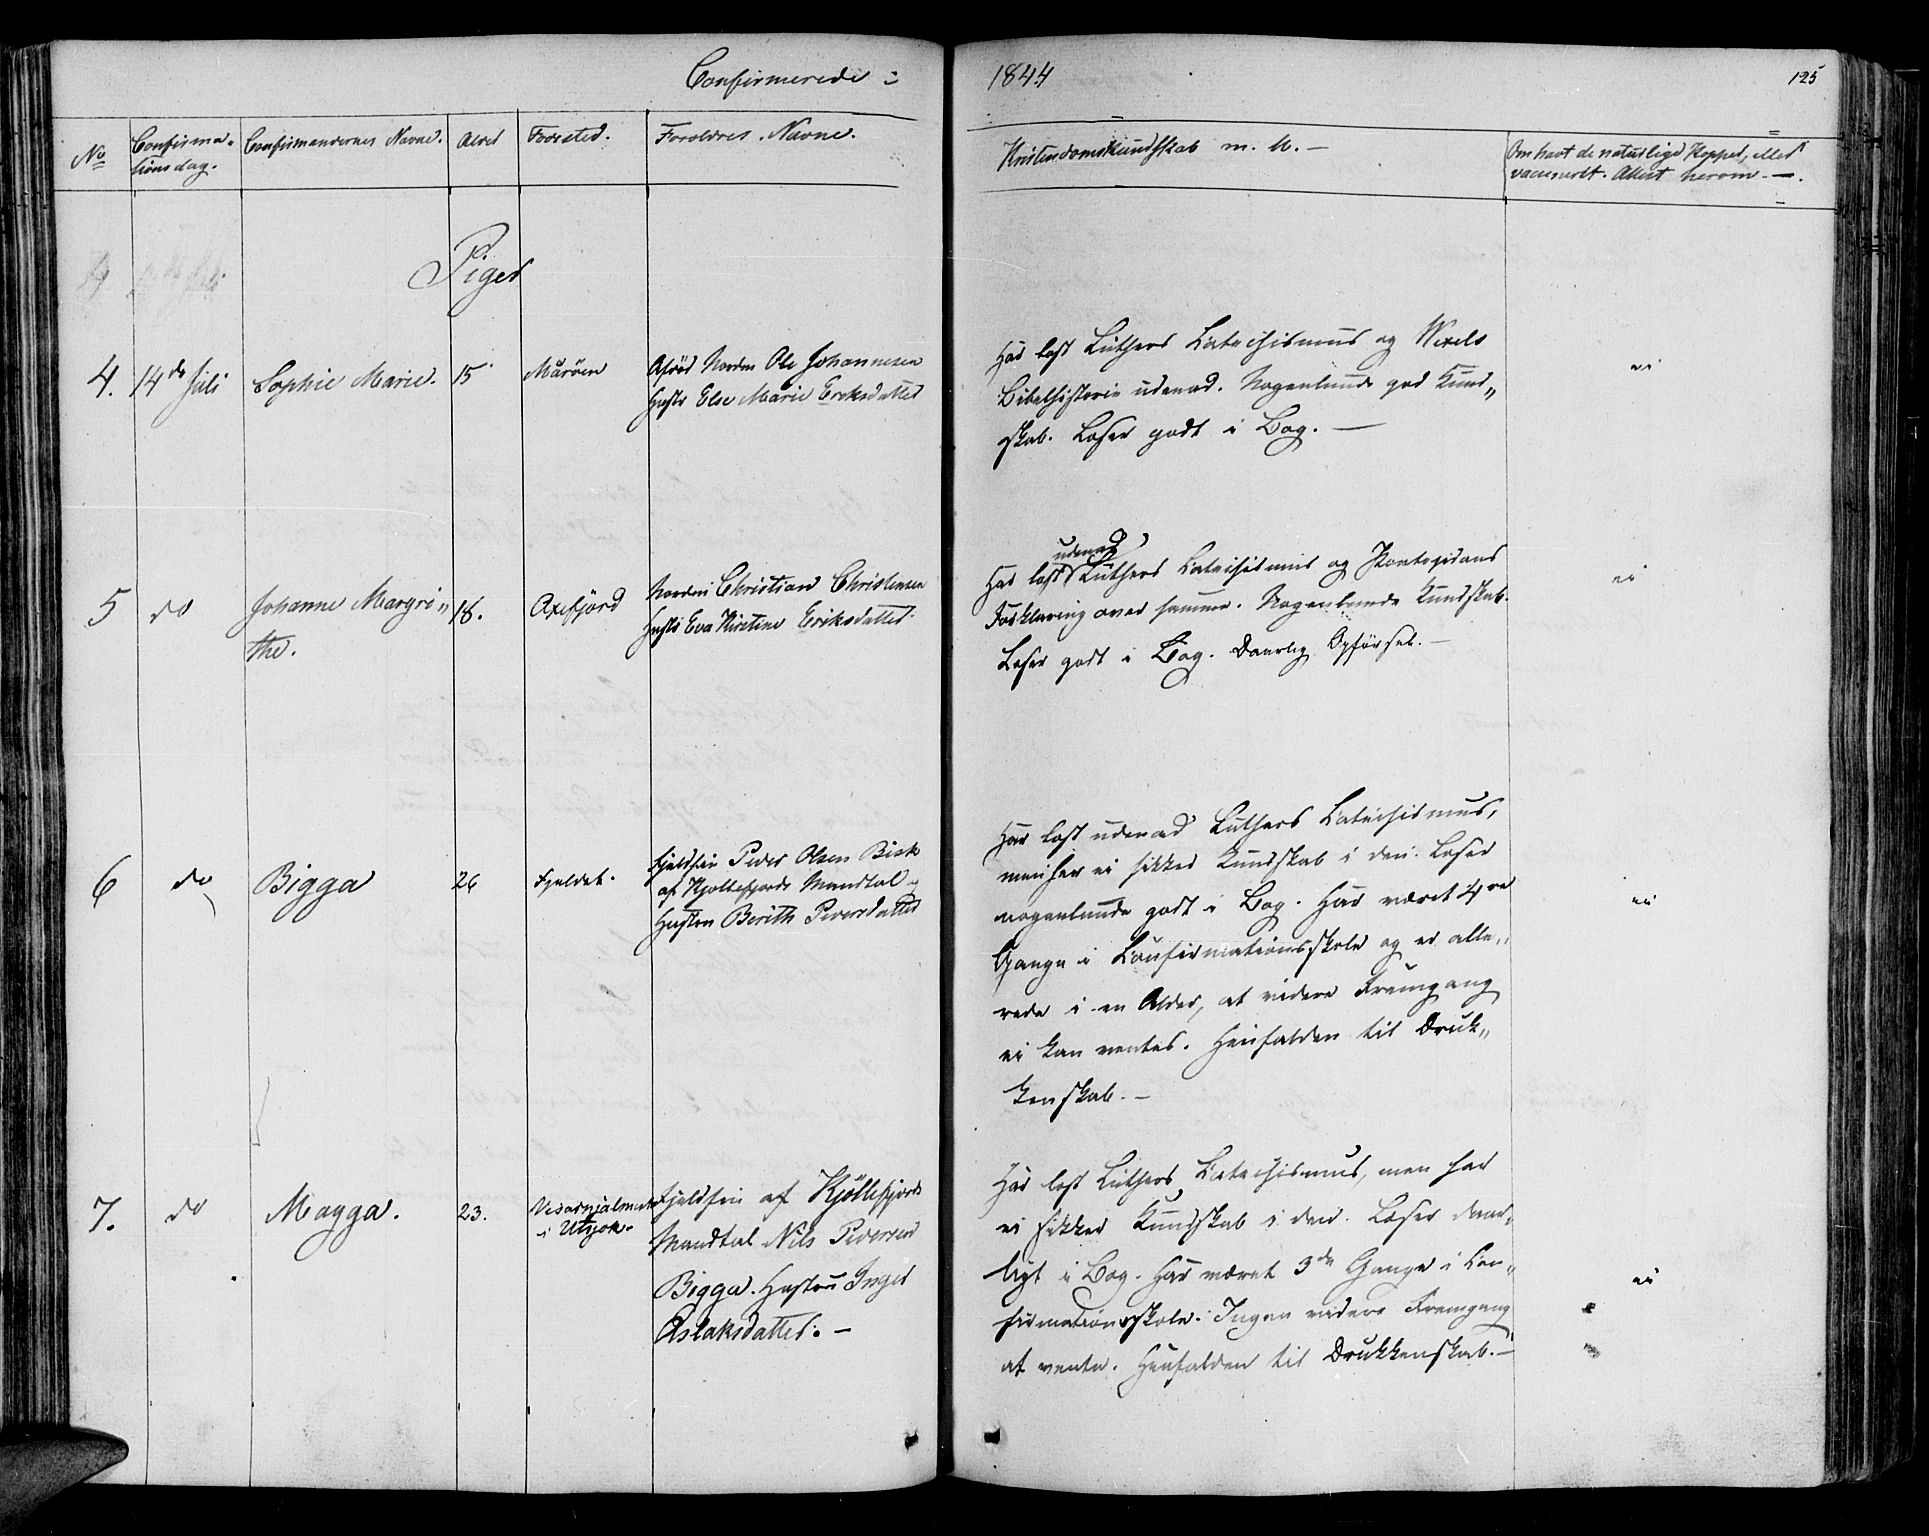 Confirmerede :
1844
125
No
Confirma-
tionsdag.
Confirmandernes Navne.
Alder
Fødested.
Foreldres Navne.
Kristendomskundskab m. M. –
Om havt de naturlige Kopper, eller
vaccineret. Attest herom. –.
Piger
4.
14de Juli
Sophie Marie.
15
Marøen
Afdøde Nordm Ole Johannesen
Hustr Else Marie Eriksdatter
Har læst Luthers Catechismus og Wexels
Bibelhistorie udenad. Nogenlunde god Kund„
skab. Læser godt i Bog. –
ei
5
do
Johanne Margri„
the.
18.
Oxefjord
Nordm Christian Christensen
Hustr Eva Kirstine Eriksdatter.
udenad
Har læst Luthers Catechismus og Pontopidans
Forklaring over samme. Nogenlunde Kundskab.
Læser godt i Bog. Daarlig Opførsel. –
ei
6
do
Bigga
26
Fjeldet.
Fjeldfin Peder Olsen Bisk
af Kjøllefjords Mandtal og
Hustru Berith Pedersdatter
Har læst udenad Luthers Catechismus,
men har ei sikker Kundskab i den. Læser
nogenlunde godt i Bog. Har været 4re
Gange i Confirmationsskole og er alle„
rede i en Alder, at videre Fremgang
ei kan ventes. Henfalden til Druk„
kenskab. –
ei
7.
do
Magga.
23.
i Utsjok.
Fjeldfin af Kjøllefjords
Mandtal Nils Pedersen
Bigga. Hustru Inger
Aslaksdatter. –
Har læst Luthers Catechismus, men har
ei sikker Kundskab i den. Læser daar„
ligt i Bog. Har været 3de Gange i Con„
firmationsskole. Ingen videre Fremgang
at vente. Henfalden til Drukkenskab. –
ei